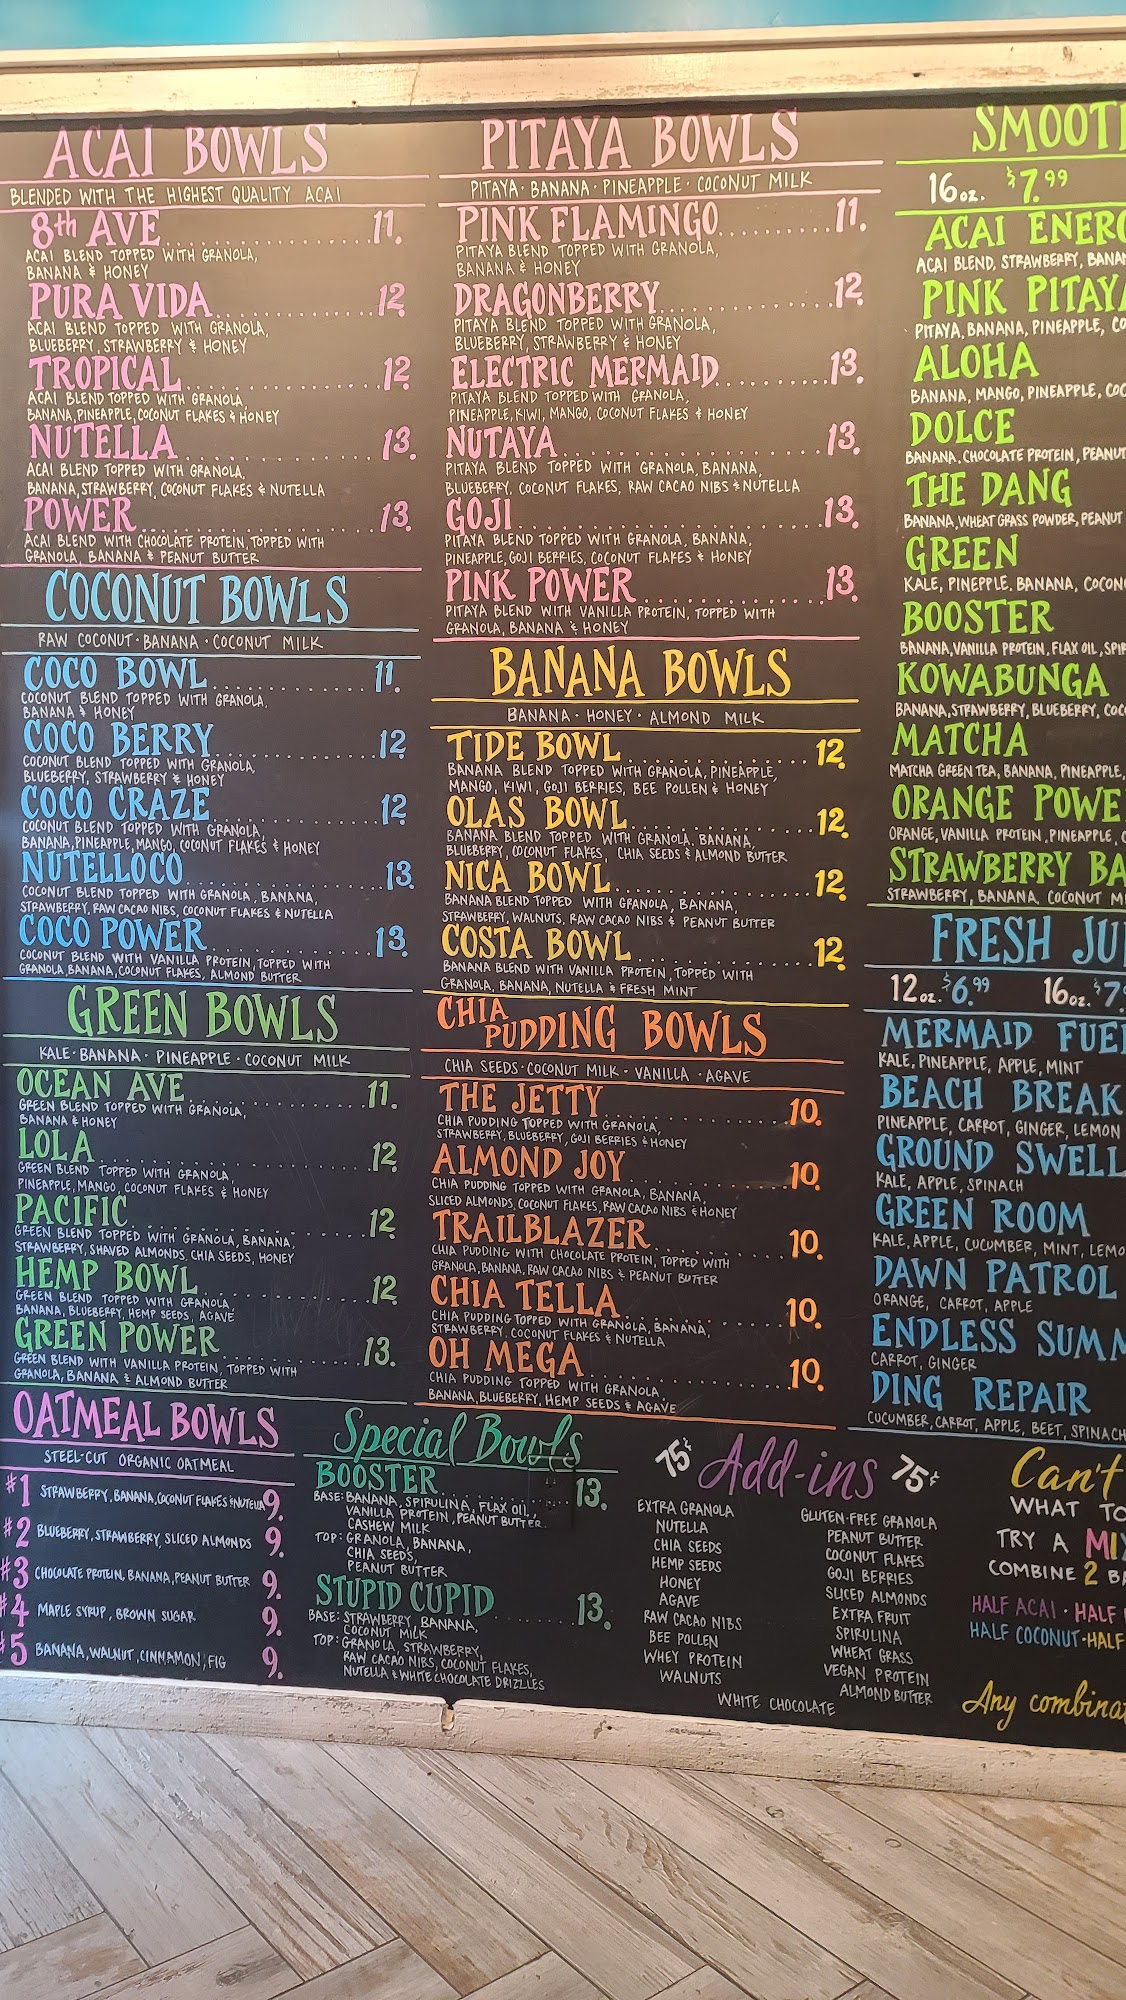 ACAI BOWLS
BLENDED WITH THE HIGHEST QUALITY ACAI
8th AVE 11.
ACAI BLEND TOPPED WITH GRANOLA,
BANANA & HONEY
PURA VIDA 12.
ACAI BLEND TOPPED WITH GRANOLA,
BLUEBERRY, STRAWBERRY & HONEY
TROPICAL 12.
ACAI BLEND TOPPED WITH GRANOLA,
BANANA, PINEAPPLE, COCONUT FLAKES & HONEY
NUTELLA 13.
ACAI BLEND TOPPED WITH GRANOLA,
BANANA, STRAWBERRY, COCONUT FLAKES & NUTELLA
POWER 13.
ACAI BLEND WITH CHOCOLATE PROTEIN, TOPPED WITH
GRANOLA, BANANA & PEANUT BUTTER
COCONUT BOWLS
RAW COCONUT · BANANA · COCONUT MILK
COCO BOWL 11.
COCONUT BLEND TOPPED WITH GRANOLA,
BANANA & HONEY
COCO BERRY 12.
COCONUT BLEND TOPPED WITH GRANOLA,
BLUEBERRY, STRAWBERRY & HONEY
COCO CRAZE 12.
COCONUT BLEND TOPPED WITH GRANOLA,
BANANA, PINEAPPLE, MANGO, COCONUT FLAKES & HONEY
NUTELLOCO 13.
COCONUT BLEND TOPPED WITH GRANOLA, BANANA,
STRAWBERRY, RAW CACAO NIBS, COCONUT FLAKES & NUTELLA
COCO POWER 13.
COCONUT BLEND WITH VANILLA PROTEIN, TOPPED WITH
GRANOLA, BANANA, COCONUT FLAKES, ALMOND BUTTER
GREEN BOWLS
KALE · BANANA · PINEAPPLE · COCONUT MILK
OCEAN AVE 11.
GREEN BLEND TOPPED WITH GRANOLA,
BANANA & HONEY
LOLA 12.
GREEN BLEND TOPPED WITH GRANOLA,
PINEAPPLE, MANGO, COCONUT FLAKES & HONEY
PACIFIC 12.
GREEN BLEND TOPPED WITH GRANOLA, BANANA,
STRAWBERRY, SHAVED ALMONDS, CHIA SEEDS, HONEY
HEMP BOWL 12.
GREEN BLEND TOPPED WITH GRANOLA,
BANANA, BLUEBERRY, HEMP SEEDS, AGAVE
GREEN POWER 13.
GREEN BLEND WITH VANILLA PROTEIN, TOPPED WITH
GRANOLA, BANANA & ALMOND BUTTER
OATMEAL BOWLS
STEEL-CUT ORGANIC OATMEAL
#1 STRAWBERRY, BANANA, COCONUT FLAKES & NUTELLA 9.
#2 BLUEBERRY, STRAWBERRY, SLICED ALMONDS 9.
#3 CHOCOLATE PROTEIN, BANANA, PEANUT BUTTER 9.
#4 MAPLE SYRUP, BROWN SUGAR 9.
#5 BANANA, WALNUT, CINNAMON, FIG 9.
PITAYA BOWLS
PITAYA · BANANA · PINEAPPLE · COCONUT MILK
PINK FLAMINGO 11.
PITAYA BLEND TOPPED WITH GRANOLA,
BANANA & HONEY
DRAGONBERRY 12.
PITAYA BLEND TOPPED WITH GRANOLA,
BLUEBERRY, STRAWBERRY & HONEY
ELECTRIC MERMAID 13.
PITAYA BLEND TOPPED WITH GRANOLA,
PINEAPPLE, KIWI, MANGO, COCONUT FLAKES & HONEY
NUTAYA 13.
PITAYA BLEND TOPPED WITH GRANOLA, BANANA,
BLUEBERRY, COCONUT FLAKES, RAW CACAO NIBS & NUTELLA
GOJI 13.
PITAYA BLEND TOPPED WITH GRANOLA, BANANA,
PINEAPPLE, GOJI BERRIES, COCONUT FLAKES & HONEY
PINK POWER 13.
PITAYA BLEND WITH VANILLA PROTEIN, TOPPED WITH
GRANOLA, BANANA & HONEY
BANANA BOWLS
BANANA · HONEY · ALMOND MILK
TIDE BOWL 12.
BANANA BLEND TOPPED WITH GRANOLA, PINEAPPLE,
MANGO, KIWI, GOJI BERRIES, BEE POLLEN & HONEY
OLAS BOWL 12.
BANANA BLEND TOPPED WITH GRANOLA, BANANA,
BLUEBERRY, COCONUT FLAKES, CHIA SEEDS & ALMOND BUTTER
NICA BOWL 12.
BANANA BLEND TOPPED WITH GRANOLA, BANANA,
STRAWBERRY, WALNUTS, RAW CACAO NIBS & PEANUT BUTTER
COSTA BOWL 12.
BANANA BLEND WITH VANILLA PROTEIN, TOPPED WITH
GRANOLA, BANANA, NUTELLA & FRESH MINT
CHIA PUDDING BOWLS
CHIA SEEDS · COCONUT MILK · VANILLA · AGAVE
THE JETTY 10.
CHIA PUDDING TOPPED WITH GRANOLA,
STRAWBERRY, BLUEBERRY, GOJI BERRIES & HONEY
ALMOND JOY 10.
CHIA PUDDING TOPPED WITH GRANOLA, BANANA,
SLICED ALMONDS, COCONUT FLAKES, RAW CACAO NIBS & HONEY
TRAILBLAZER 10.
CHIA PUDDING WITH CHOCOLATE PROTEIN, TOPPED WITH
GRANOLA, BANANA, RAW CACAO NIBS & PEANUT BUTTER
CHIA TELLA 10.
CHIA PUDDING TOPPED WITH GRANOLA, BANANA,
STRAWBERRY, COCONUT FLAKES & NUTELLA
OH MEGA 10.
CHIA PUDDING TOPPED WITH GRANOLA,
BANANA, BLUEBERRY, HEMP SEEDS & AGAVE
Special Bowls
BOOSTER 13.
BASE: BANANA, SPIRULINA, FLAX OIL,
VANILLA PROTEIN, PEANUT BUTTER,
CASHEW MILK
TOP: GRANOLA, BANANA,
CHIA SEEDS,
PEANUT BUTTER
STUPID CUPID 13.
BASE: STRAWBERRY, BANANA,
COCONUT MILK
TOP: GRANOLA, STRAWBERRY,
RAW CACAO NIBS, COCONUT FLAKES,
NUTELLA & WHITE CHOCOLATE DRIZZLES
75¢ Add-ins 75¢
EXTRA GRANOLA
NUTELLA
CHIA SEEDS
HEMP SEEDS
HONEY
AGAVE
RAW CACAO NIBS
BEE POLLEN
WHEY PROTEIN
WALNUTS
GLUTEN-FREE GRANOLA
PEANUT BUTTER
COCONUT FLAKES
GOJI BERRIES
SLICED ALMONDS
EXTRA FRUIT
SPIRULINA
WHEAT GRASS
VEGAN PROTEIN
ALMOND BUTTER
WHITE CHOCOLATE
SMOOT
16oz. $7.99
ACAI ENERG
ACAI BLEND, STRAWBERRY, BANAN
PINK PITAYA
PITAYA, BANANA, PINEAPPLE, CO
ALOHA
BANANA, MANGO, PINEAPPLE, COC
DOLCE
BANANA, CHOCOLATE PROTEIN, PEANUT
THE DANG
BANANA, WHEAT GRASS POWDER, PEANUT
GREEN
KALE, PINEPPLE, BANANA, COCON
BOOSTER
BANANA, VANILLA PROTEIN, FLAX OIL, SPIR
KOWABUNGA
BANANA, STRAWBERRY, BLUEBERRY, COC
MATCHA
MATCHA GREEN TEA, BANANA, PINEAPPLE,
ORANGE POWE
ORANGE, VANILLA PROTEIN, PINEAPPLE, C
STRAWBERRY BA
STRAWBERRY, BANANA, COCONUT MI
FRESH JUI
12oz. $6.99 16oz. $7.9
MERMAID FUEL
KALE, PINEAPPLE, APPLE, MINT
BEACH BREAK
PINEAPPLE, CARROT, GINGER, LEMON
GROUND SWELL
KALE, APPLE, SPINACH
GREEN ROOM
KALE, APPLE, CUCUMBER, MINT, LEMO
DAWN PATROL
ORANGE, CARROT, APPLE
ENDLESS SUMM
CARROT, GINGER
DING REPAIR
CUCUMBER, CARROT, APPLE, BEET, SPINACH
Can't
WHAT TO
TRY A MIX
COMBINE 2 BA
HALF ACAI · HALF
HALF COCONUT · HALF
Any combinat